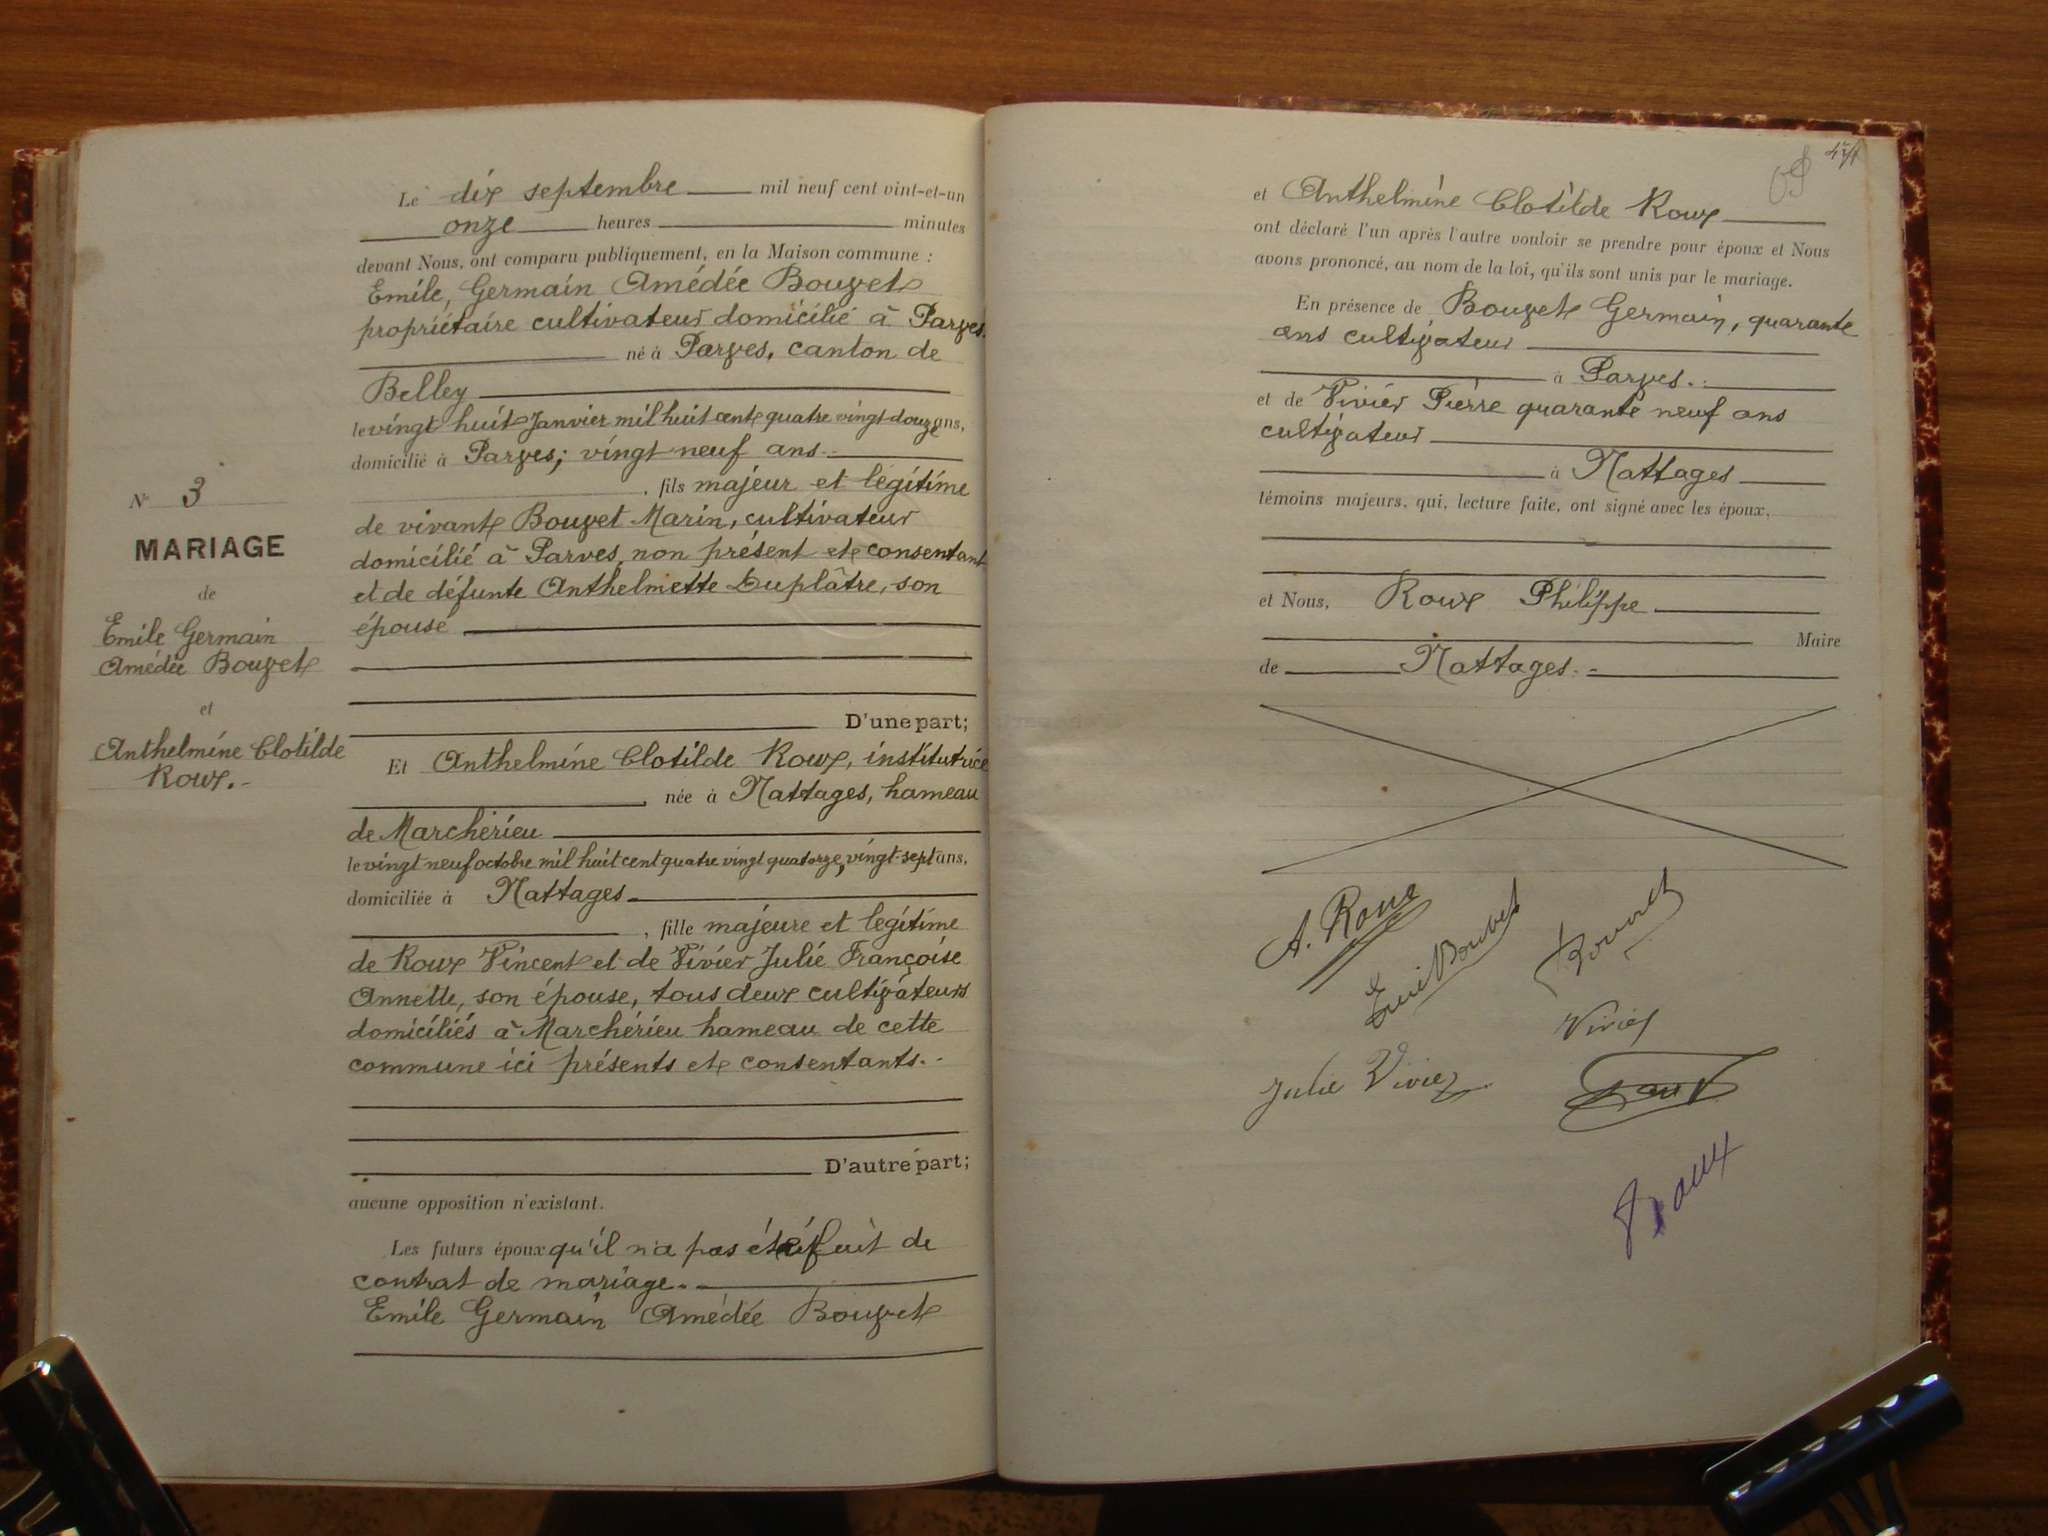 N° 3
MARIAGE
de
Emile Germain
Amédée Bouvet
et
Anthelmine Clotilde
Roux.-
Le dix septembre mil neuf cent vint-et-un
onze heures minutes
devant Nous, ont comparu publiquement, en la Maison commune :
Emile, Germain Amédée Bouvet
propriétaire cultivateur domicilié à Parves.
né à Parves, canton de
Belley
le vingt huit Janvier mil huit cent quatre vingt douze ans,
domicilié à Parves; vingt neuf ans.
, fils majeur et légitime
de vivant Bouvet Marin, cultivateur
domicilié à Parves, non présent et consentant
et de défunte Anthelmette Duplâtre, son
épouse
D'une part;
Et Anthelmine Clotilde Roux, institutrice
, née à Nattages, hameau
de Marchérieu
le vingt neuf octobre mil huit cent quatre vingt quatorze, vingt-sept ans,
domiciliée à Nattages
, fille majeure et légitime
de Roux Vincent et de Vivier Julie Françoise
Annette, son épouse, tous deux cultivateurs
domiciliés à Marchérieu hameau de cette
commune ici présents et consentants.-
D'autre part;
aucune opposition n'existant.
Les futurs époux qu'il n'a pas été fait de
contrat de mariage.
Emile Germain Amédée Bouvet
et Anthelmine Clotilde Roux
ont déclaré l'un après l'autre vouloir se prendre pour époux et Nous
avons prononcé, au nom de la loi, qu'ils sont unis par le mariage.
En présence de Bouvet Germain, quarante
ans cultivateur
à Parves.
et de Vivier Pierre quarante neuf ans
cultivateur
à Nattages
témoins majeurs, qui, lecture faite, ont signé avec les époux,
et Nous, Roux Philippe
Maire
de Nattages.-
A. Roux
Emile Bouvet
Bouvet
Vivier
Julie Vivier
Roux
Roux